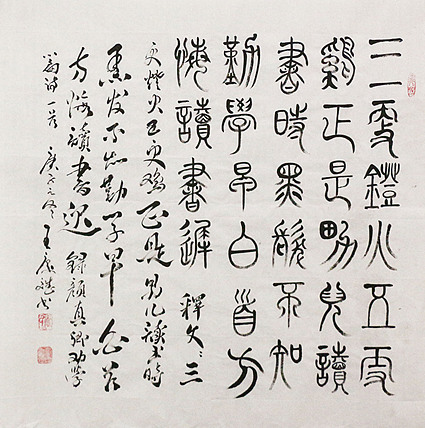 三更鐙火五更
鷄正是男兒讀
書時黑髮不知
勤學早白首方
悔讀書遲 釋文：三
更燈火五更鷄正是男兒讀書時
黑髮不知勤學早白首
方悔讀書遲 錄顏真卿勸學
篇詩一首 庚 冬 王 書